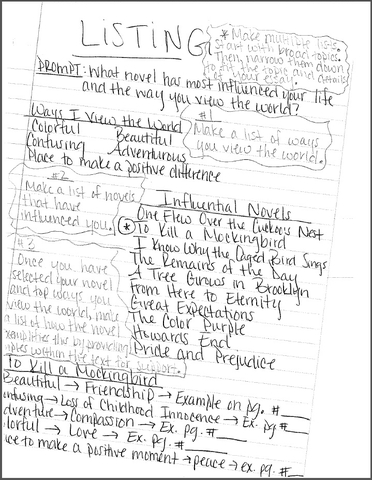 LISTING
* Make multiple lists.
start with broad topics.
Then, narrow them down
to fit the topic and details
of your essay.
PROMPT: What novel has most influenced your life
and the way you view the world?
#1
Make a list of ways
you view the world.
Ways I View the World
Colorful Beautiful
Confusing Adventurous
Place to make a positive difference
#2
Make a list of novels
that have
influenced you.
Influential Novels
One Flew Over the Cuckoo's Nest
* To Kill a Mockingbird
I Know Why the Caged Bird Sings
The Remains of the Day
A Tree Grows in Brooklyn
From Here to Eternity
Great Expectations
The Color Purple
Howards End
Pride and Prejudice
Once you have
selected your novel
and top ways you
view the world, make
a list of how the novel
exemplifies this by providing
within the text for support.
To Kill a Mockingbird
Beautiful → Friendship → Example on pg. #____
onfusing → Loss of Childhood Innocence → Ex. pg #____
dventure → Compassion → Ex. pg. #____
lorful → Love → Ex. pg. #____
ce to make a positive moment → peace → ex. pg. #__